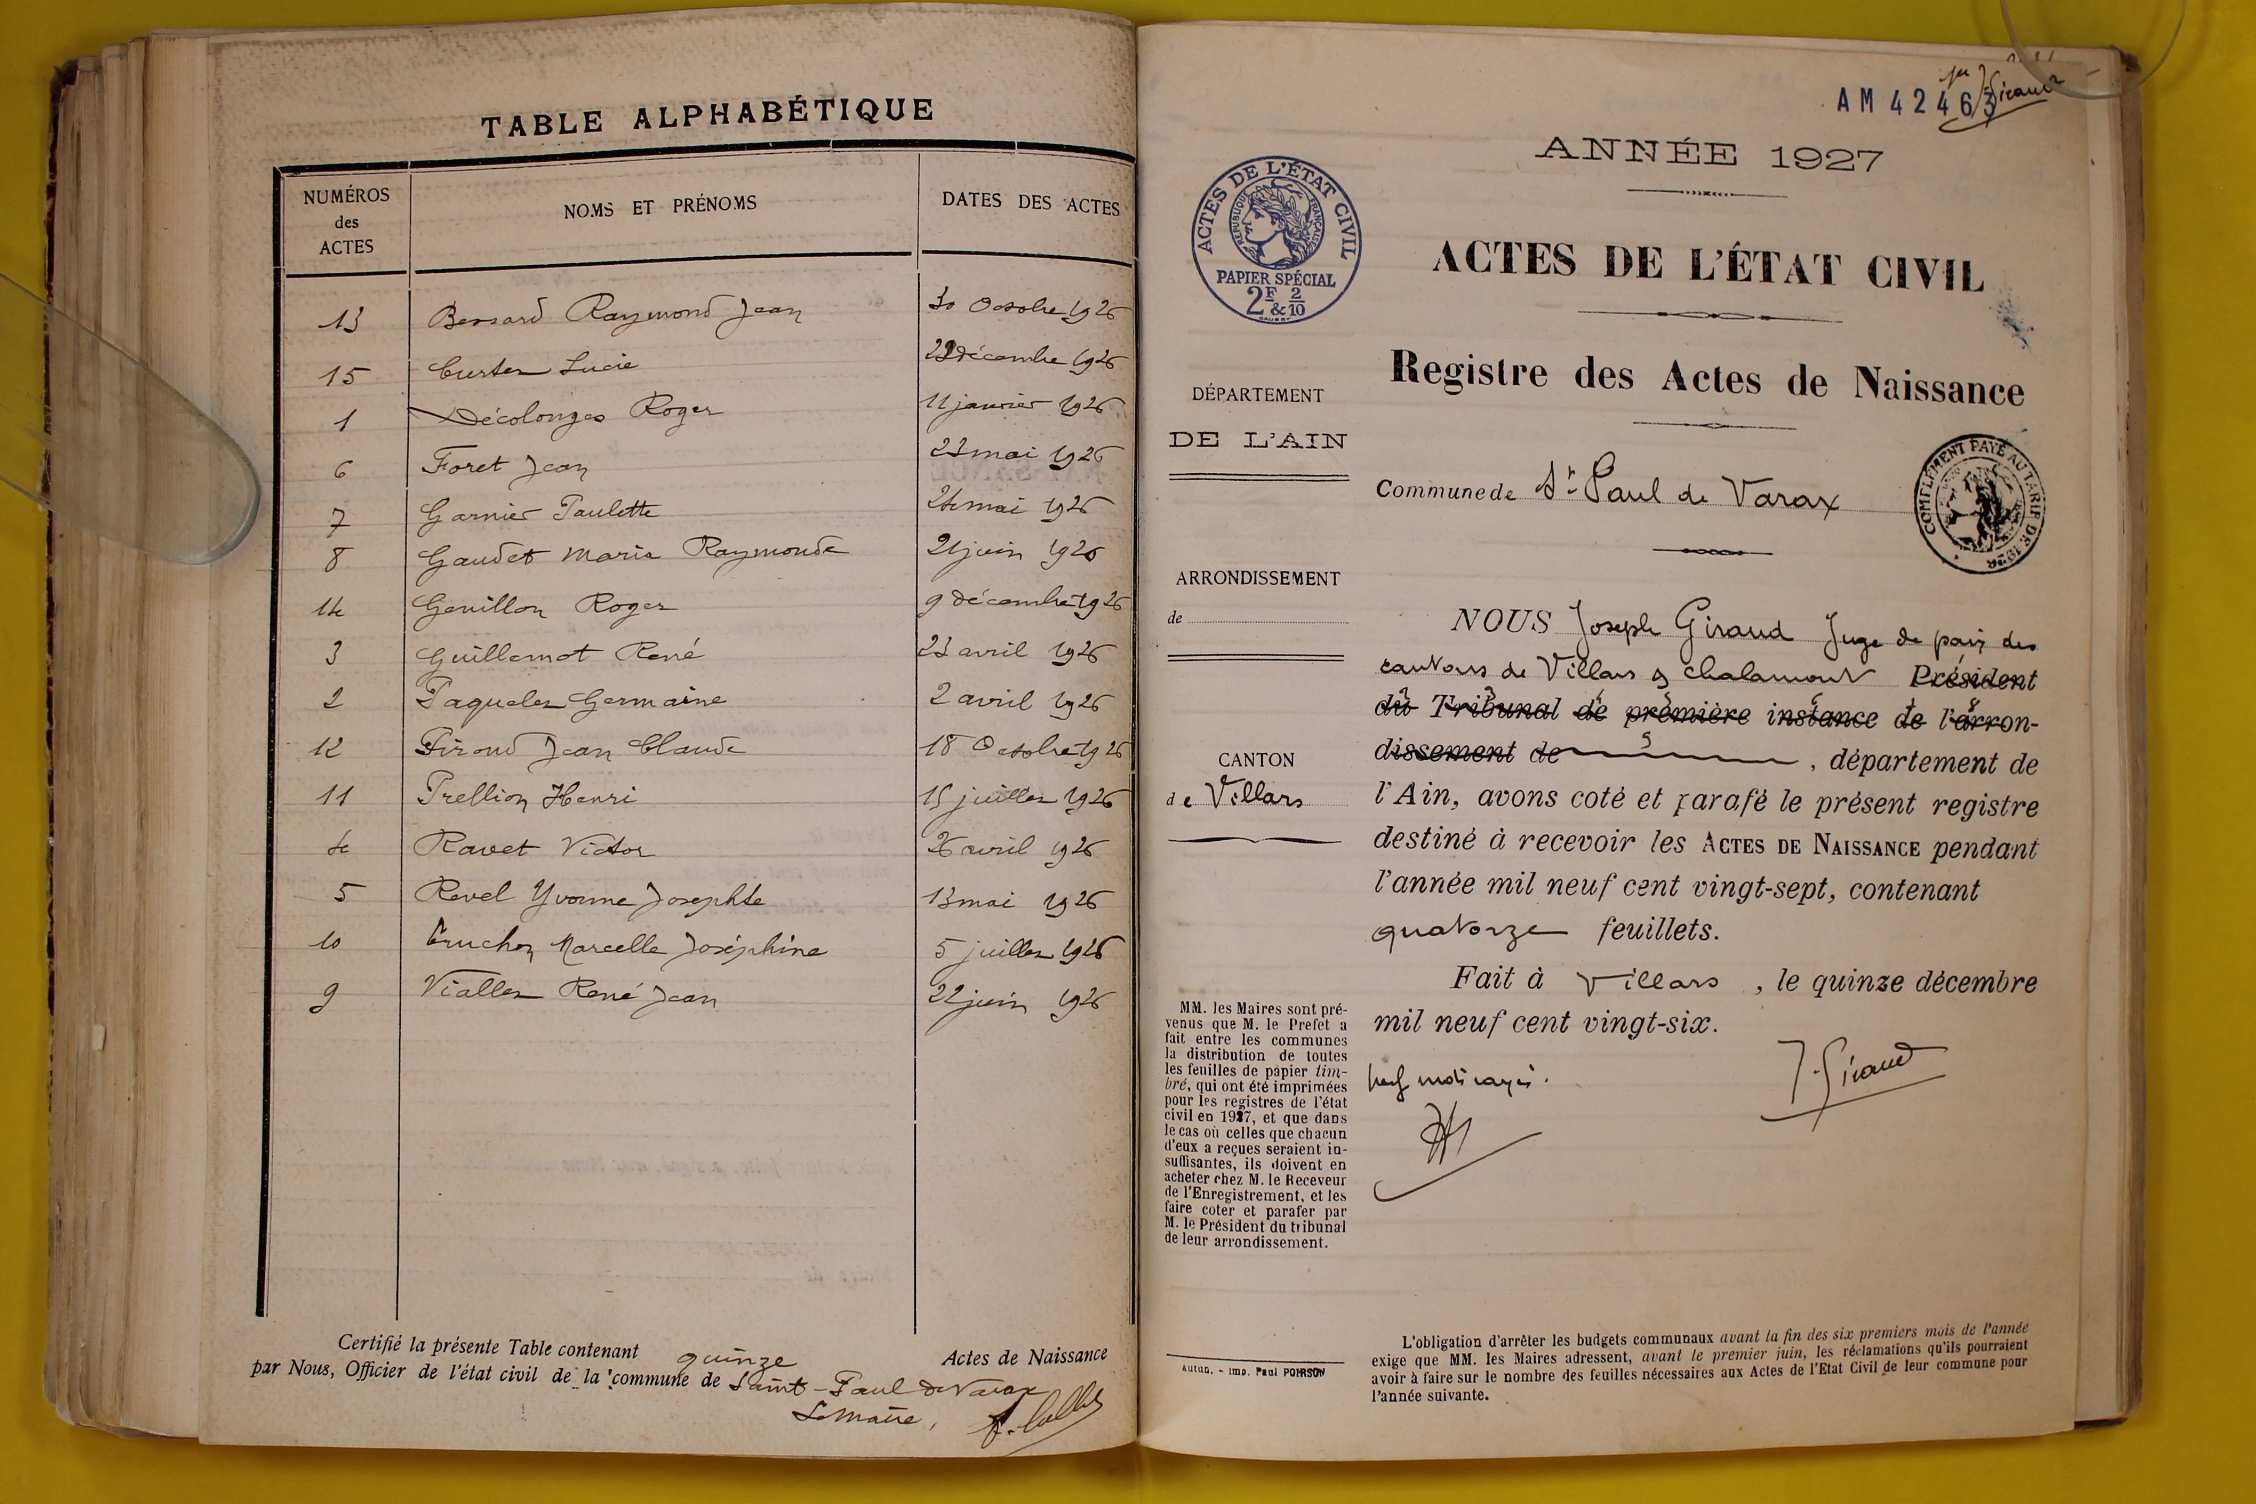 TABLE ALPHABÉTIQUE
NUMÉROS des ACTES NOMS ET PRÉNOMS DATES DES ACTES
13 Bernard Raymond Jean 30 Octobre 1926
15 Curtet Lucie décembre 1926
1 Décolonges Roger 11 janvier 1926
6 Foret Jean 23 mai 1926
7 Garnier Paulette 24 mai 1926
8 Gaudet Marie Raymonde 21 juin 1926
14 Genillon Roger 9 décembre 1926
3 Guillemot René 23 avril 1926
2 Paquelet Germaine 2 avril 1926
12 Piroud Jean Claude 18 Octobre 1926
11 Prellion Henri 15 juillet 1926
4 Ravet Victor 26 avril 1926
5 Revel Yvonne Josephte 13 mai 1926
10 Truchon Marcelle Joséphine 5 juillet 1926
9 Viallet René Jean 22 juin 1926
Certifié la présente Table contenant quinze Actes de Naissance
par Nous, Officier de l'état civil de la commune de Saint-Paul de Varax
Le Maire,
AM 42463
ANNÉE 1927
ACTES DE L'ÉTAT CIVIL
RÉPUBLIQUE FRANÇAISE
PAPIER SPÉCIAL
2F & 2/10
ACTES DE L'ÉTAT CIVIL
Registre des Actes de Naissance
DÉPARTEMENT
DE L'AIN
Commune de St Paul de Varax
COMPLÉMENT PAYÉ AU TARIF DE
ARRONDISSEMENT
de
CANTON
de Villars
NOUS Joseph Giraud Juge de paix des
cantons de Villars & Chalamont Président
du Tribunal de première instance de l'arron-
dissement de , département de
l'Ain, avons coté et parafé le présent registre
destiné à recevoir les ACTES DE NAISSANCE pendant
l'année mil neuf cent vingt-sept, contenant
quatorze feuillets.
Fait à Villars, le quinze décembre
mil neuf cent vingt-six.
neuf mots rayés.
J. Giraud
MM. les Maires sont pré-
venus que M. le Prefet a
fait entre les communes
la distribution de toutes
les feuilles de papier tim-
bré, qui ont été imprimées
pour les registres de l'état
civil en 1927, et que dans
le cas où celles que chacun
d'eux a reçues seraient in-
suffisantes, ils doivent en
acheter chez M. le Receveur
de l'Enregistrement, et les
faire coter et parafer par
M. le Président du tribunal
de leur arrondissement.
Autun. - Imp. Paul POIRSON
L'obligation d'arrêter les budgets communaux avant la fin des six premiers mois de l'année
exige que MM. les Maires adressent, avant le premier juin, les réclamations qu'ils pourraient
avoir à faire sur le nombre des feuilles nécessaires aux Actes de l'Etat Civil de leur commune pour
l'année suivante.